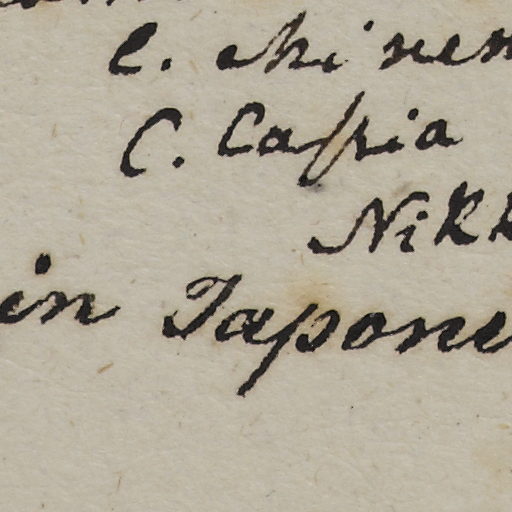 C. chinen
C. Cassia
Nikk
in Japone